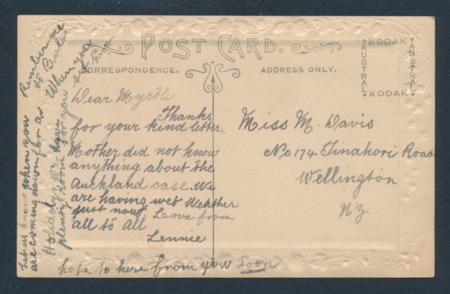 POST CARD.
CORRESPONDENCE.
ADDRESS ONLY.
KODAK
AUSTRAL
AUSTRAL
KODAK
Dear Myrtle
Thanks
for your kind letter.
Mother did not know
anything about the
Auckland case. We
are having wet Weather
just now Love from
all to All
Lennie
hope to here from you soon
Let us know when you
are coming down for as
Holidays we have
plenty room for you
Remember me
to
When you
see
Miss M. Davis
No 174 Tinakori Road
Wellington
NZ